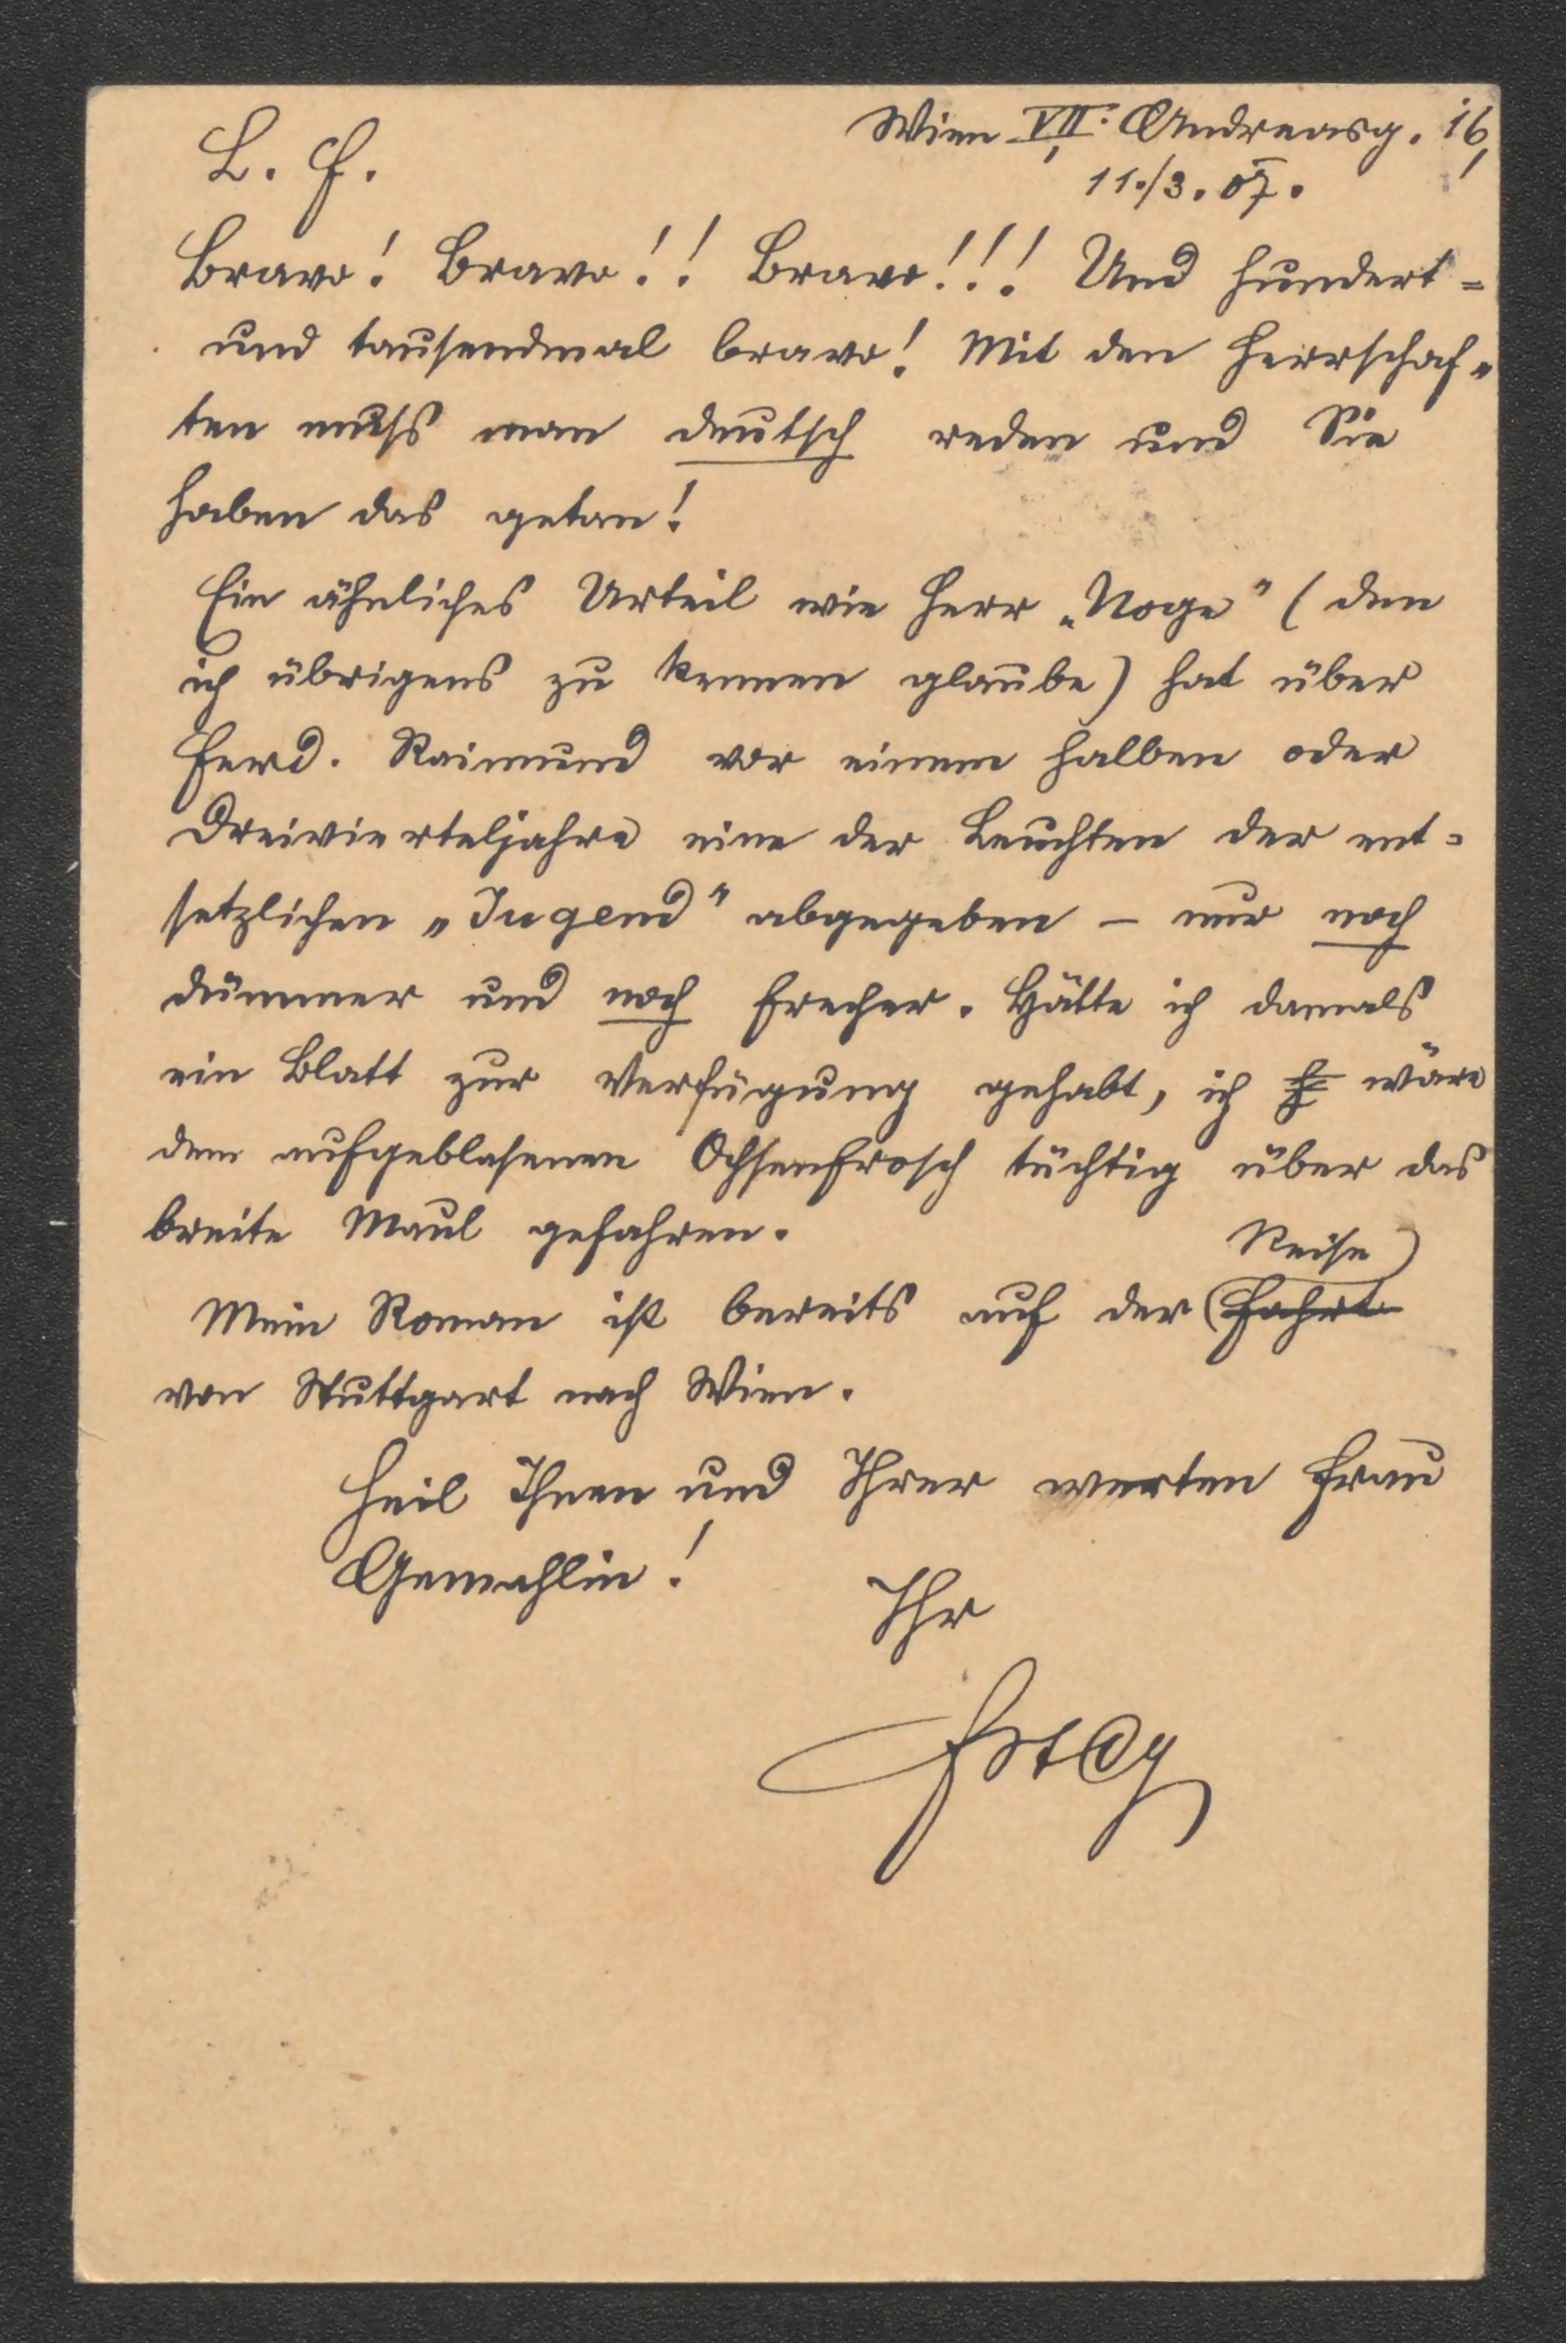 Wien VII. Andreasg. 16,
11./3. 07.
L. F.
Bravo! Bravo!! Bravo!!! Und hundert-
und tausendmal bravo! Mit den Herrschaf-
ten muss man deutsch reden und Sie
haben das getan!
Ein ähnliches Urteil wie Herr „Noge" (den
ich übrigens zu kennen glaube) hat über
Ferd. Raimund vor einem halben oder
Dreivierteljahre eine der Leuchten der ent-
setzlichen „Jugend" abgegeben – nur noch
dümmer und noch frecher. Hätte ich damals
ein Blatt zur Verfügung gehabt, ich h wäre
dem aufgeblasenen Ochsenfrosch tüchtig über das
breite Maul gefahren.
Reise
Mein Roman ist bereits auf der Fahrt
von Stuttgart nach Wien.
Heil Ihnen und Ihrer werten Frau
Gemahlin!
Ihr